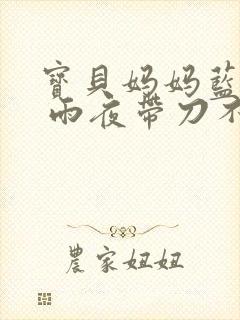 寶貝妈妈藍
雨夜帶刀不
農家妞妞